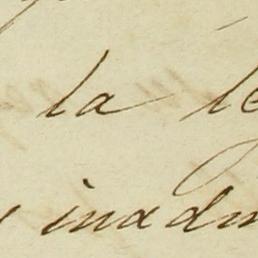 la lé
inadm